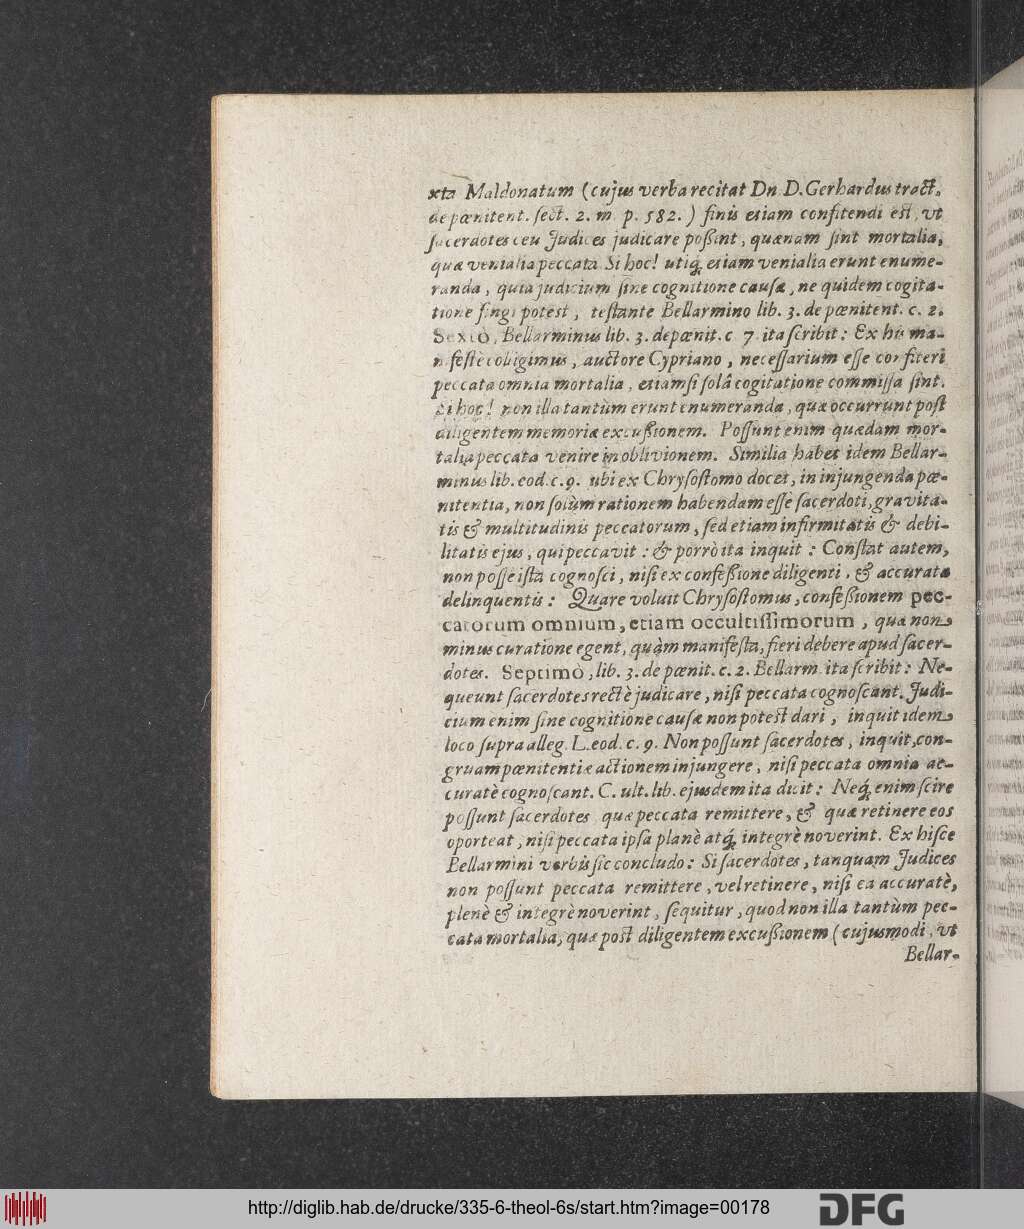 xta Maldonatum (cujus verba recitat Dn. D. Gerhardus tract.
de pœnitent. sect. 2. m. p. 582.) finis etiam confitendi est, ut
sacerdotes ceu Judices judicare poßint, quænam sint mortalia,
quæ venialia peccata. Si hoc! utiq; etiam venialia erunt enume-
randa, quia judicium sine cognitione causæ, ne quidem cogita-
tione fingi potest, testante Bellarmino lib. 3. de pœnitent. c. 2.
Sextò, Bellarminus lib. 3. de pœnit. c. 7. ita scribit: Ex his ma-
nifestè colligimus, auctore Cypriano, necessarium esse confiteri
peccata omnia mortalia, etiamsi solâ cogitatione commissa sint.
Si hoc! non illa tantùm erunt enumeranda, quæ occurrunt post
diligentem memoriæ excußionem. Possunt enim quædam mor-
talia peccata venire in oblivionem. Similia habet idem Bellar-
minus lib. eod. c. 9. ubi ex Chrysostomo docet, in injungenda pœ-
nitentia, non solùm rationem habendam esse sacerdoti, gravita-
tis & multitudinis peccatorum, sed etiam infirmitatis & debi-
litatis ejus, qui peccavit: & porrò ita inquit: Constat autem,
non posse ista cognosci, nisi ex confeßione diligenti, & accurata
delinquentis: Quare voluit Chrysostomus, confeßionem pec-
catorum omnium, etiam occultissimorum, quæ non
minus curatione egent, quàm manifesta, fieri debere apud sacer-
dotes. Septimò, lib. 3. de pœnit. c. 2. Bellarm. ita scribit: Ne-
queunt sacerdotes rectè judicare, nisi peccata cognoscant. Judi-
cium enim sine cognitione causæ non potest dari, inquit idem
loco supra alleg. L. eod. c. 9. Non possunt sacerdotes, inquit, con-
gruam pœnitentiæ actionem injungere, nisi peccata omnia ac-
curatè cognoscant. C. ult. lib. ejusdem ita dicit: Neq; enim scire
possunt sacerdotes quæ peccata remittere, & quæ retinere eos
oporteat, nisi peccata ipsa planè atq; integrè noverint. Ex hisce
Bellarmini verbis sic concludo: Si sacerdotes, tanquam Judices
non possunt peccata remittere, vel retinere, nisi ea accuratè,
plenè & integrè noverint, sequitur, quod non illa tantùm pec-
cata mortalia, quæ post diligentem excußionem (cujusmodi, ut
Bellar-
http://diglib.hab.de/drucke/335-6-theol-6s/start.htm?image=00178
DFG